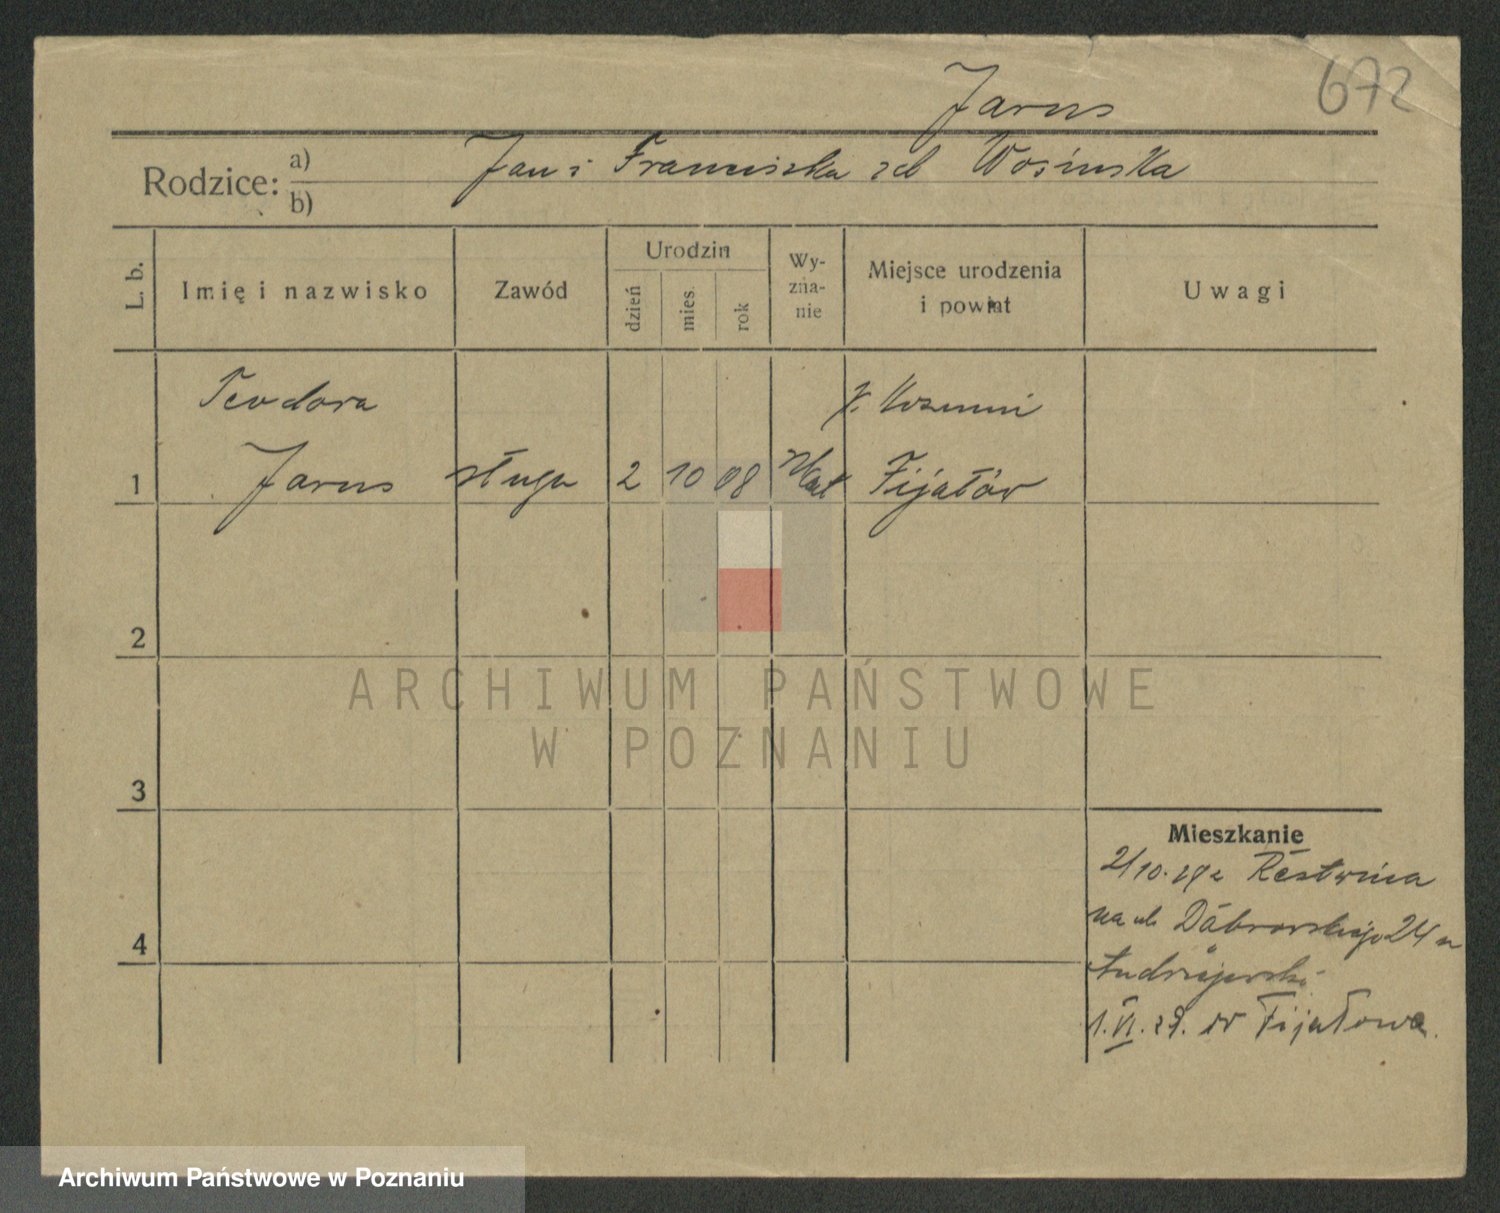 672
Jarus
Rodzice: a) Jan i Franciszka zd Wosińska
b)
L. b.
Imię i nazwisko
Zawód
Urodzin
dzień
mies.
rok
Wy-
zna-
nie
Miejsce urodzenia
i powiat
Uwagi
Teodora
1 Jarus
sługa
2
10
08
kat
p. Kozmin
Fijałów
2
3
4
Mieszkanie
2/10. 28 z
na ul. Dąbrowskiego 24 u
Andrzejewski
1. VI. 29. w Fijałowa.
ARCHIWUM PAŃSTWOWE
W POZNANIU
Archiwum Państwowe w Poznaniu